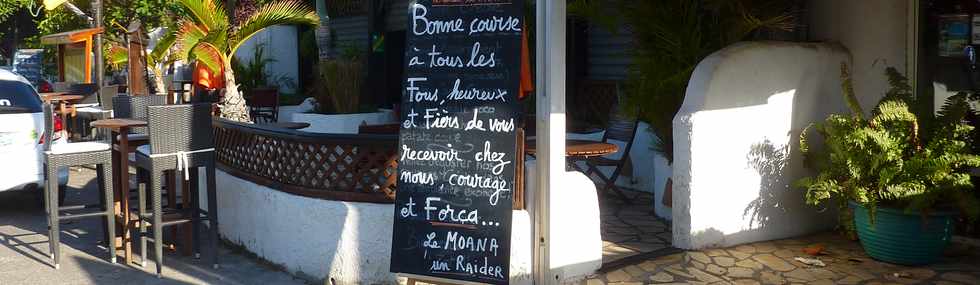 Bonne course
à tous les
Fous, heureux
et Fièrs, de vous
recevoir chez
nous, courage
et Força...
Le MOANA
un Raider